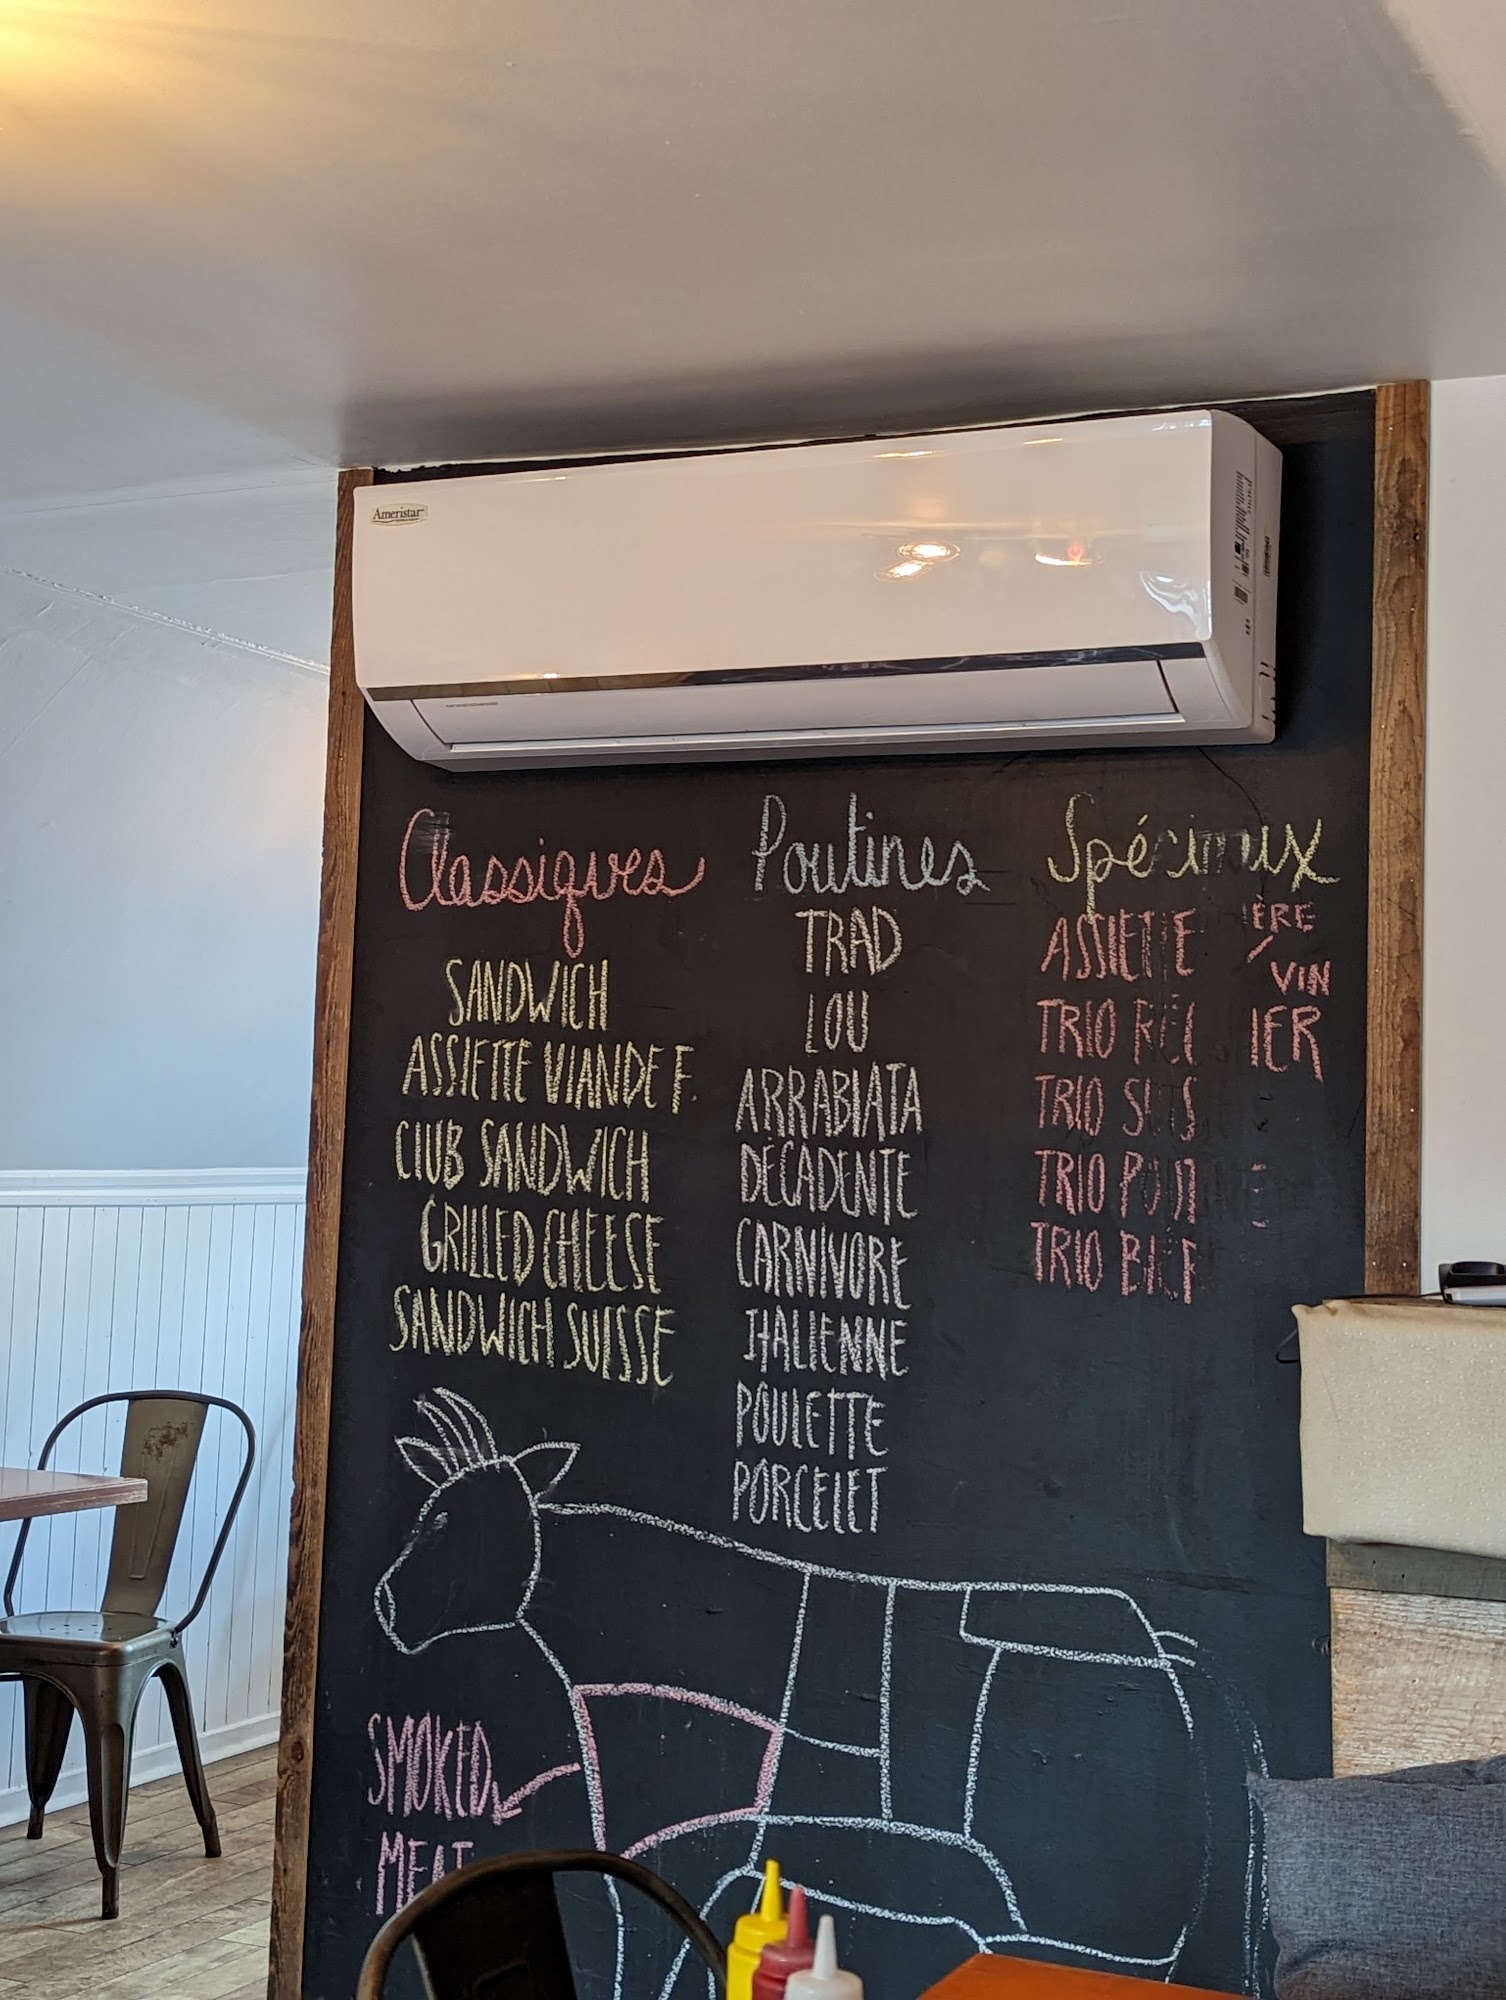 Ameristar
Classiques
SANDWICH
ASSIETTE VIANDE F.
CLUB SANDWICH
GRILLED CHEESE
SANDWICH SUISSE
Poutines
TRAD
LOU
ARRABIATA
DÉCADENTE
CARNIVORE
ITALIENNE
POULETTE
PORCELET
Spéciaux
ASSIETTE ÈRE
/ VIN
TRIO IER
TRIO
TRIO
TRIO
SMOKED
MEAT